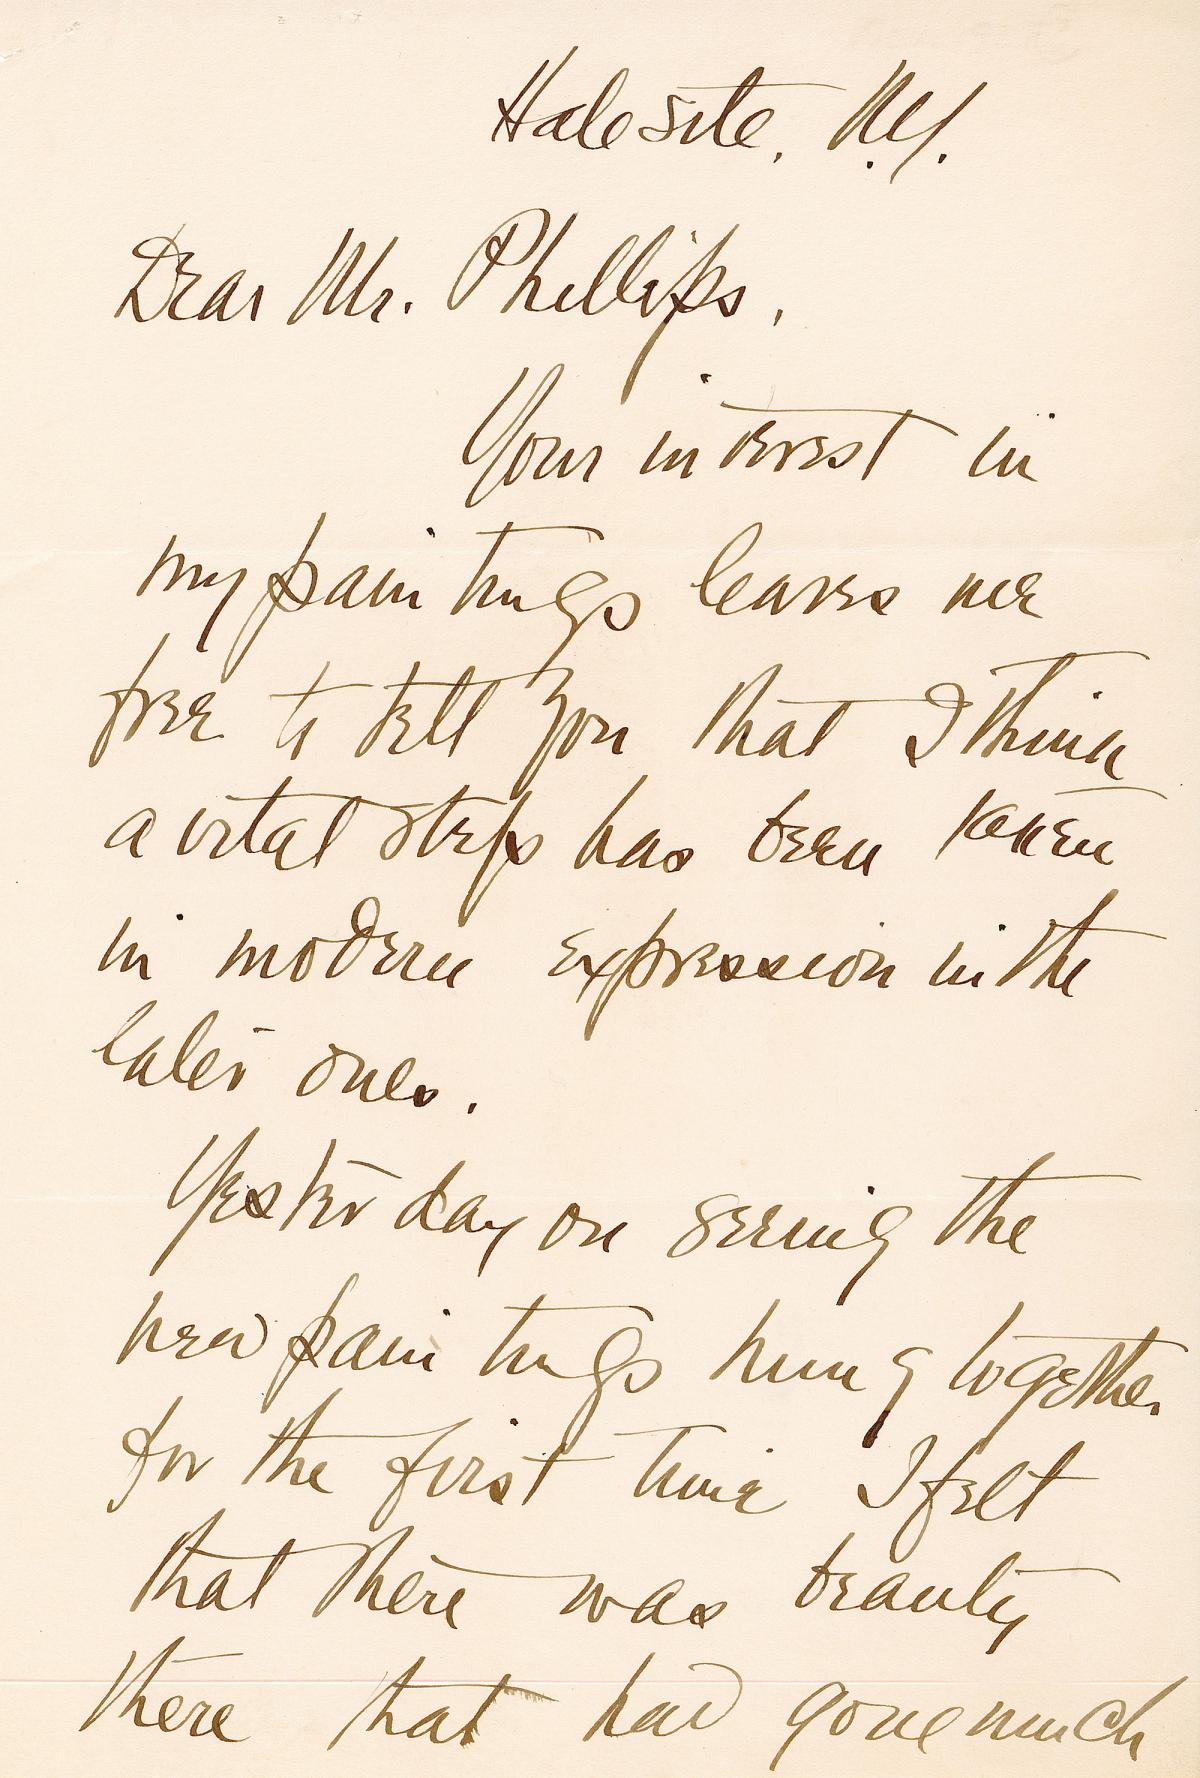 Halesite, N.Y.
Dear Mr. Phillips,
Your interest in
my paintings leaves me
free to tell you that I think
a vital step has been taken
in modern expression in the
later ones.
Yesterday on seeing the
new paintings hung together
for the first time I felt
that there was beauty
there that had gone much